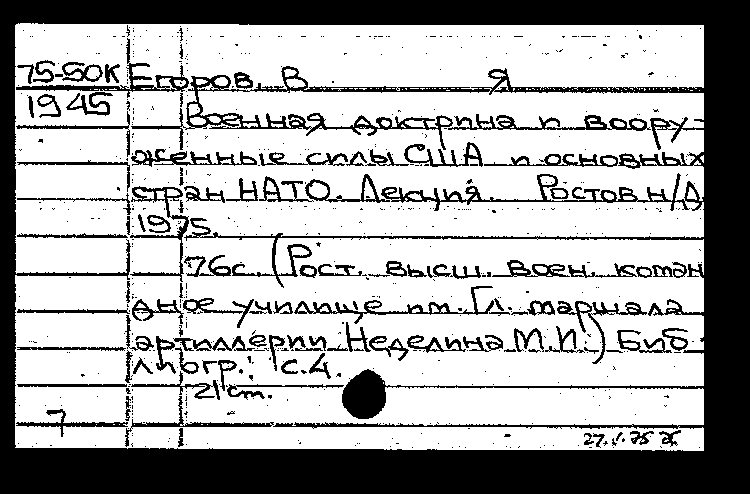 75-50К Егоров, В Я
1945
Военная доктрина и воору-
женные силы США и основных
стран НАТО. Лекция. Ростов н/Д
1975.
76с. (Рост. высш. воен. коман
дное училище им. Гл. маршала
артиллерии Неделина М.И.) Биб-
лиогр.: с.4.
21 cm.
7
27. 75